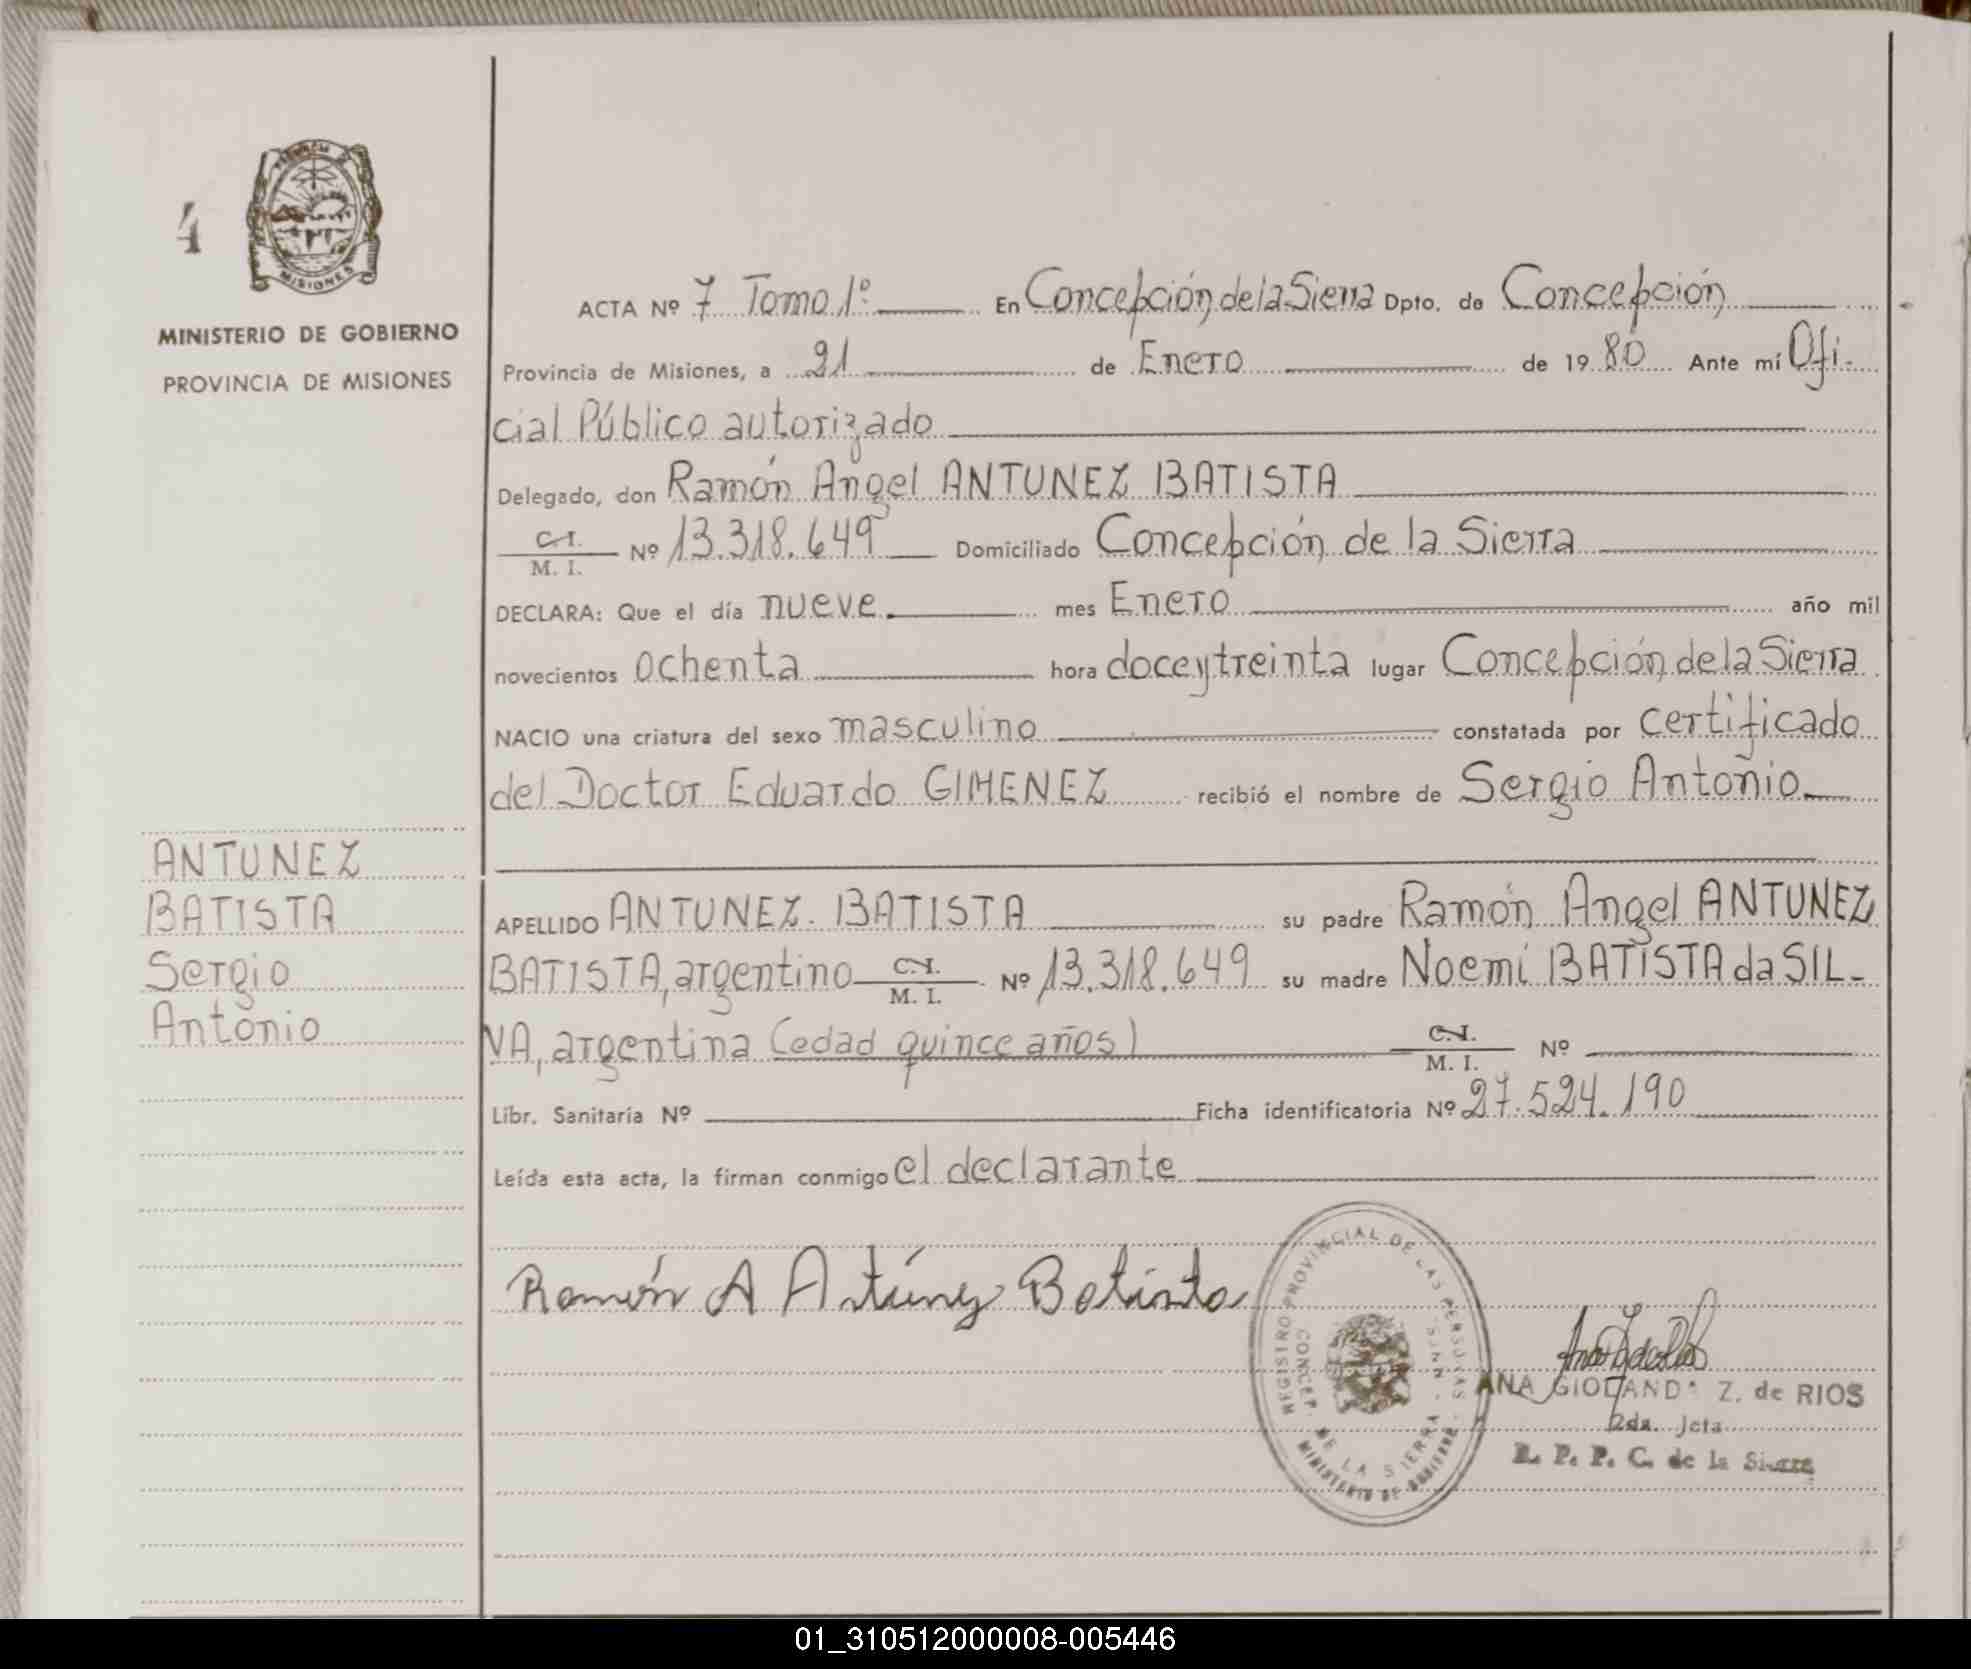 4
PROVINCIA DE
MISIONES
MINISTERIO DE GOBIERNO
PROVINCIA DE MISIONES
ACTA Nº 7 Tomo 1º En Concepción de la Sierra Dpto. de Concepción
Provincia de Misiones, a 21 de Enero de 1980 Ante mí Ofi-
cial Público autorizado
Delegado, don Ramón Angel ANTUNEZ BATISTA
C.I. / M. I. Nº 13.318.649 Domiciliado Concepción de la Sierra
DECLARA: Que el día nueve mes Enero año mil
novecientos ochenta hora doce y treinta lugar Concepción de la Sierra
NACIO una criatura del sexo masculino constatada por certificado
del Doctor Eduardo GIMENEZ recibió el nombre de Sergio Antonio
ANTUNEZ
BATISTA
Sergio
Antonio
APELLIDO ANTUNEZ BATISTA su padre Ramón Angel ANTUNEZ
BATISTA, argentino C.I. / M. I. Nº 13.318.649 su madre Noemí BATISTA da SIL-
VA, argentina (edad quince años) C.I. / M. I. Nº
Libr. Sanitaria Nº Ficha identificatoria Nº 27.524.190
Leída esta acta, la firman conmigo el declarante
Ramón A Antúnez Batista
REGISTRO PROVINCIAL DE LAS PERSONAS
CONCEP. DE LA SIERRA - MNES.
MINISTERIO DE GOBIERNO
ANA Z. de RIOS
2da. Jefa
R. P. P. C. de la Sierra
01_310512000008-005446